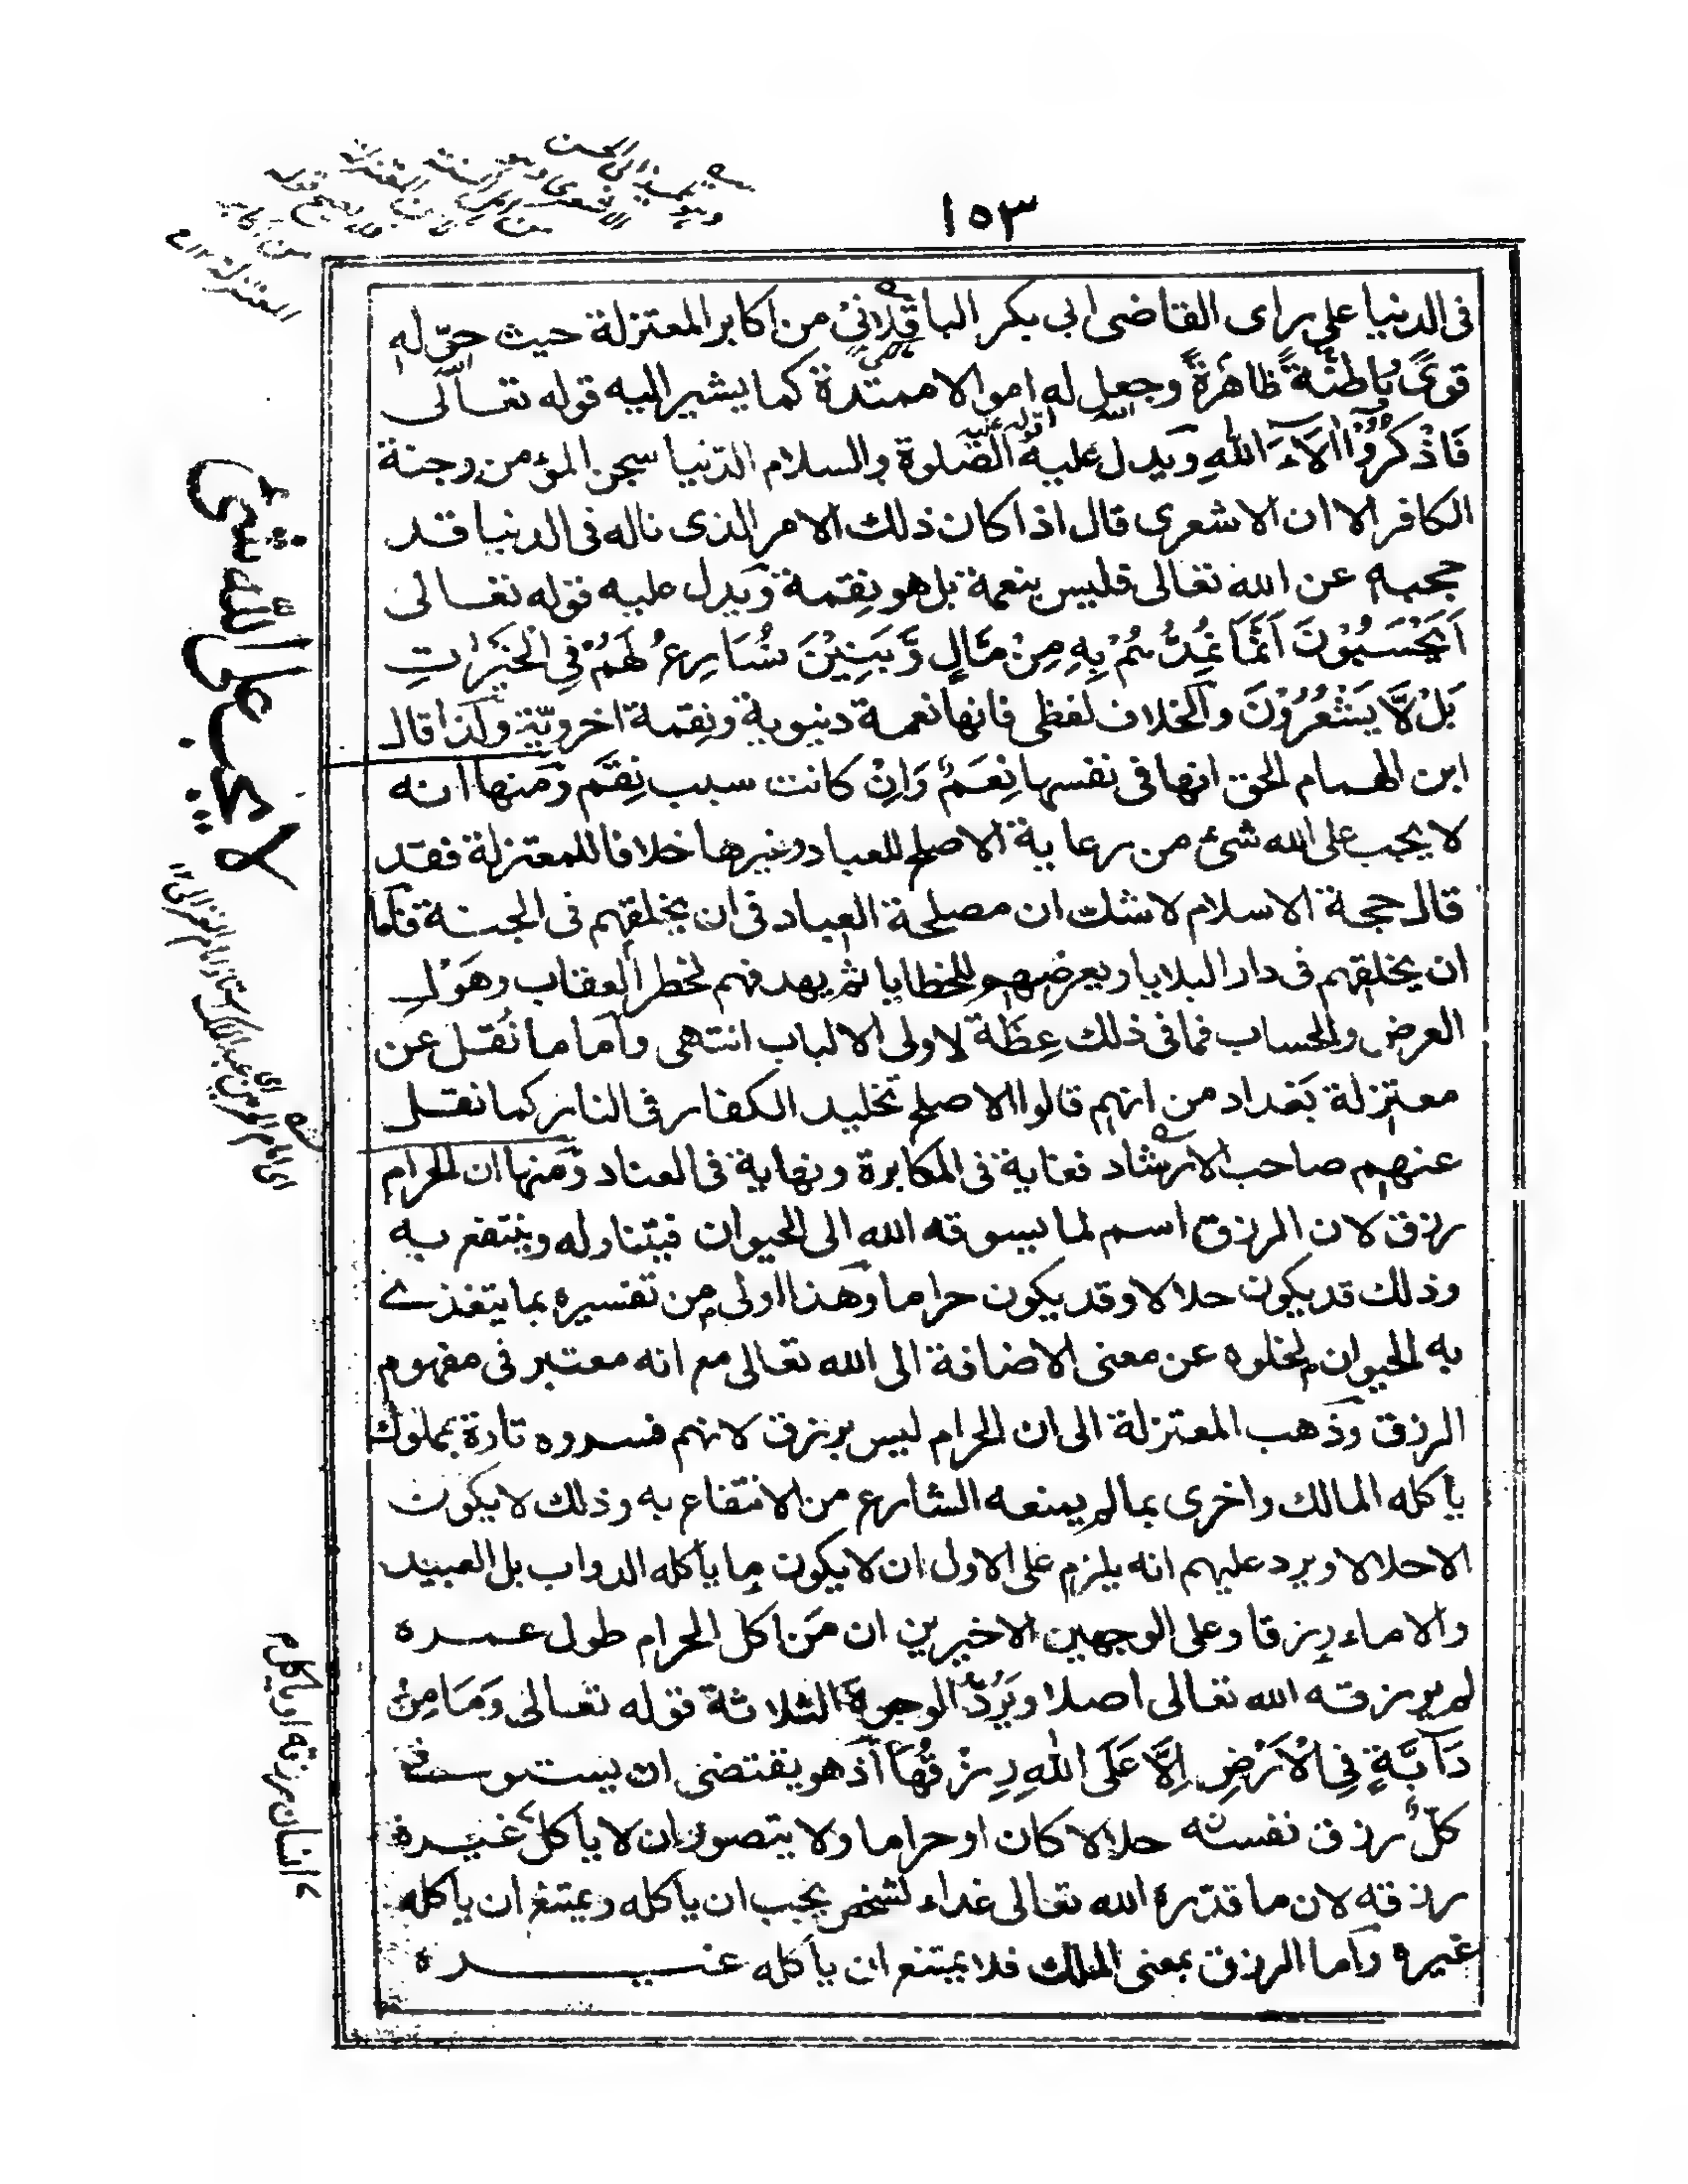 ١٥٣
فى الدنيا على راى القاضى ابى بكر الباقلانى من اكابر المعتزلة حيث حوّله
قوىً باطنةً ظاهرةً وجعل له اموالا ممتدة كما يشير اليه قوله تعالى
فَاذْكُرُوْا اٰلَاءَ اللهِ ويدل عليه قوله عليه الصلوة والسلام الدنيا سجن المؤمن وجنة
الكافر الا ان الاشعرى قال اذا كان ذلك الامر الذى ناله فى الدنيا قد
حجبه عن الله تعالى فليس بنعمة بل هو نِقمة ويدل عليه قوله تعالى
اَيَحْسَبُوْنَ اَنَّمَا نُمِدُّهُمْ بِهٖ مِنْ مَّالٍ وَّبَنِيْنَ نُسَارِعُ لَهُمْ فِى الْخَيْرٰتِ
بَلْ لَّا يَشْعُرُوْنَ والخلاف لفظى فانها نعمة دنيوية ونِقمة اخرويّة ولذا قال
ابن الهمام الحق انها فى نفسها نِعَمٌ وَاِنْ كانت سبب نِقَم ومنها انه
لا يجب على الله شئ من رعاية الاصلح للعباد وغيرها خلافا للمعتزلة فقد
قال حجة الاسلام لا شك ان مصلحة العباد فى ان يخلقهم فى الجنة فاما
ان يخلقهم فى دار البلايا ويعرضهم للخطايا ثم يهدفهم لخطر العقاب وهَوْل
العرض والحساب فما فى ذلك عِظَة لاولى الالباب انتهى واما ما نُقل عن
معتزلة بَغداد من انهم قالوا الاصلح تخليد الكفار فى النار كما نقل
عنهم صاحب الارشاد فغاية فى المكابرة ونهاية فى العناد ومنها ان الحرام
رزق لان الرزق اسم لما يسوقه الله الى الحيوان فيتناوله وينتفع به
وذلك قد يكون حلالا وقد يكون حراما وهذا اولى من تفسيره بما يتغذى
به الحيوان لخلوه عن معنى الاضافة الى الله تعالى مع انه معتبر فى مفهوم
الرزق وذهب المعتزلة الى ان الحرام ليس برزق لانهم فسروه تارة بمملوك
يأكله المالك واخرى بما لم يمنعه الشارع من الانتفاع به وذلك لا يكون
الا حلالا ويرد عليهم انه يلزم على الاول ان لا يكون ما يأكله الدواب بل العبيد
والاماء رزقا وعلى الوجهين الاخيرين ان مَن اكل الحرام طول عمره
لم يرزقه الله تعالى اصلا ويَرُدّ الوجوهَ الثلاثة قوله تعالى وَمَا مِنْ
دَآبَّةٍ فِى الْاَرْضِ اِلَّا عَلَى اللهِ رِزْقُهَا اذ هو يقتضى ان يستوفى
كلٌّ رزق نفسه حلالا كان او حراما ولا يتصور ان لا يأكل غيره
رزقه لان ما قدّره الله تعالى غذاء لشخص يجب ان يأكله ويمتنع ان يأكله
غيره واما الرزق بمعنى الملك فلا يمتنع ان يأكله غيره
لا يجب على الله شئ